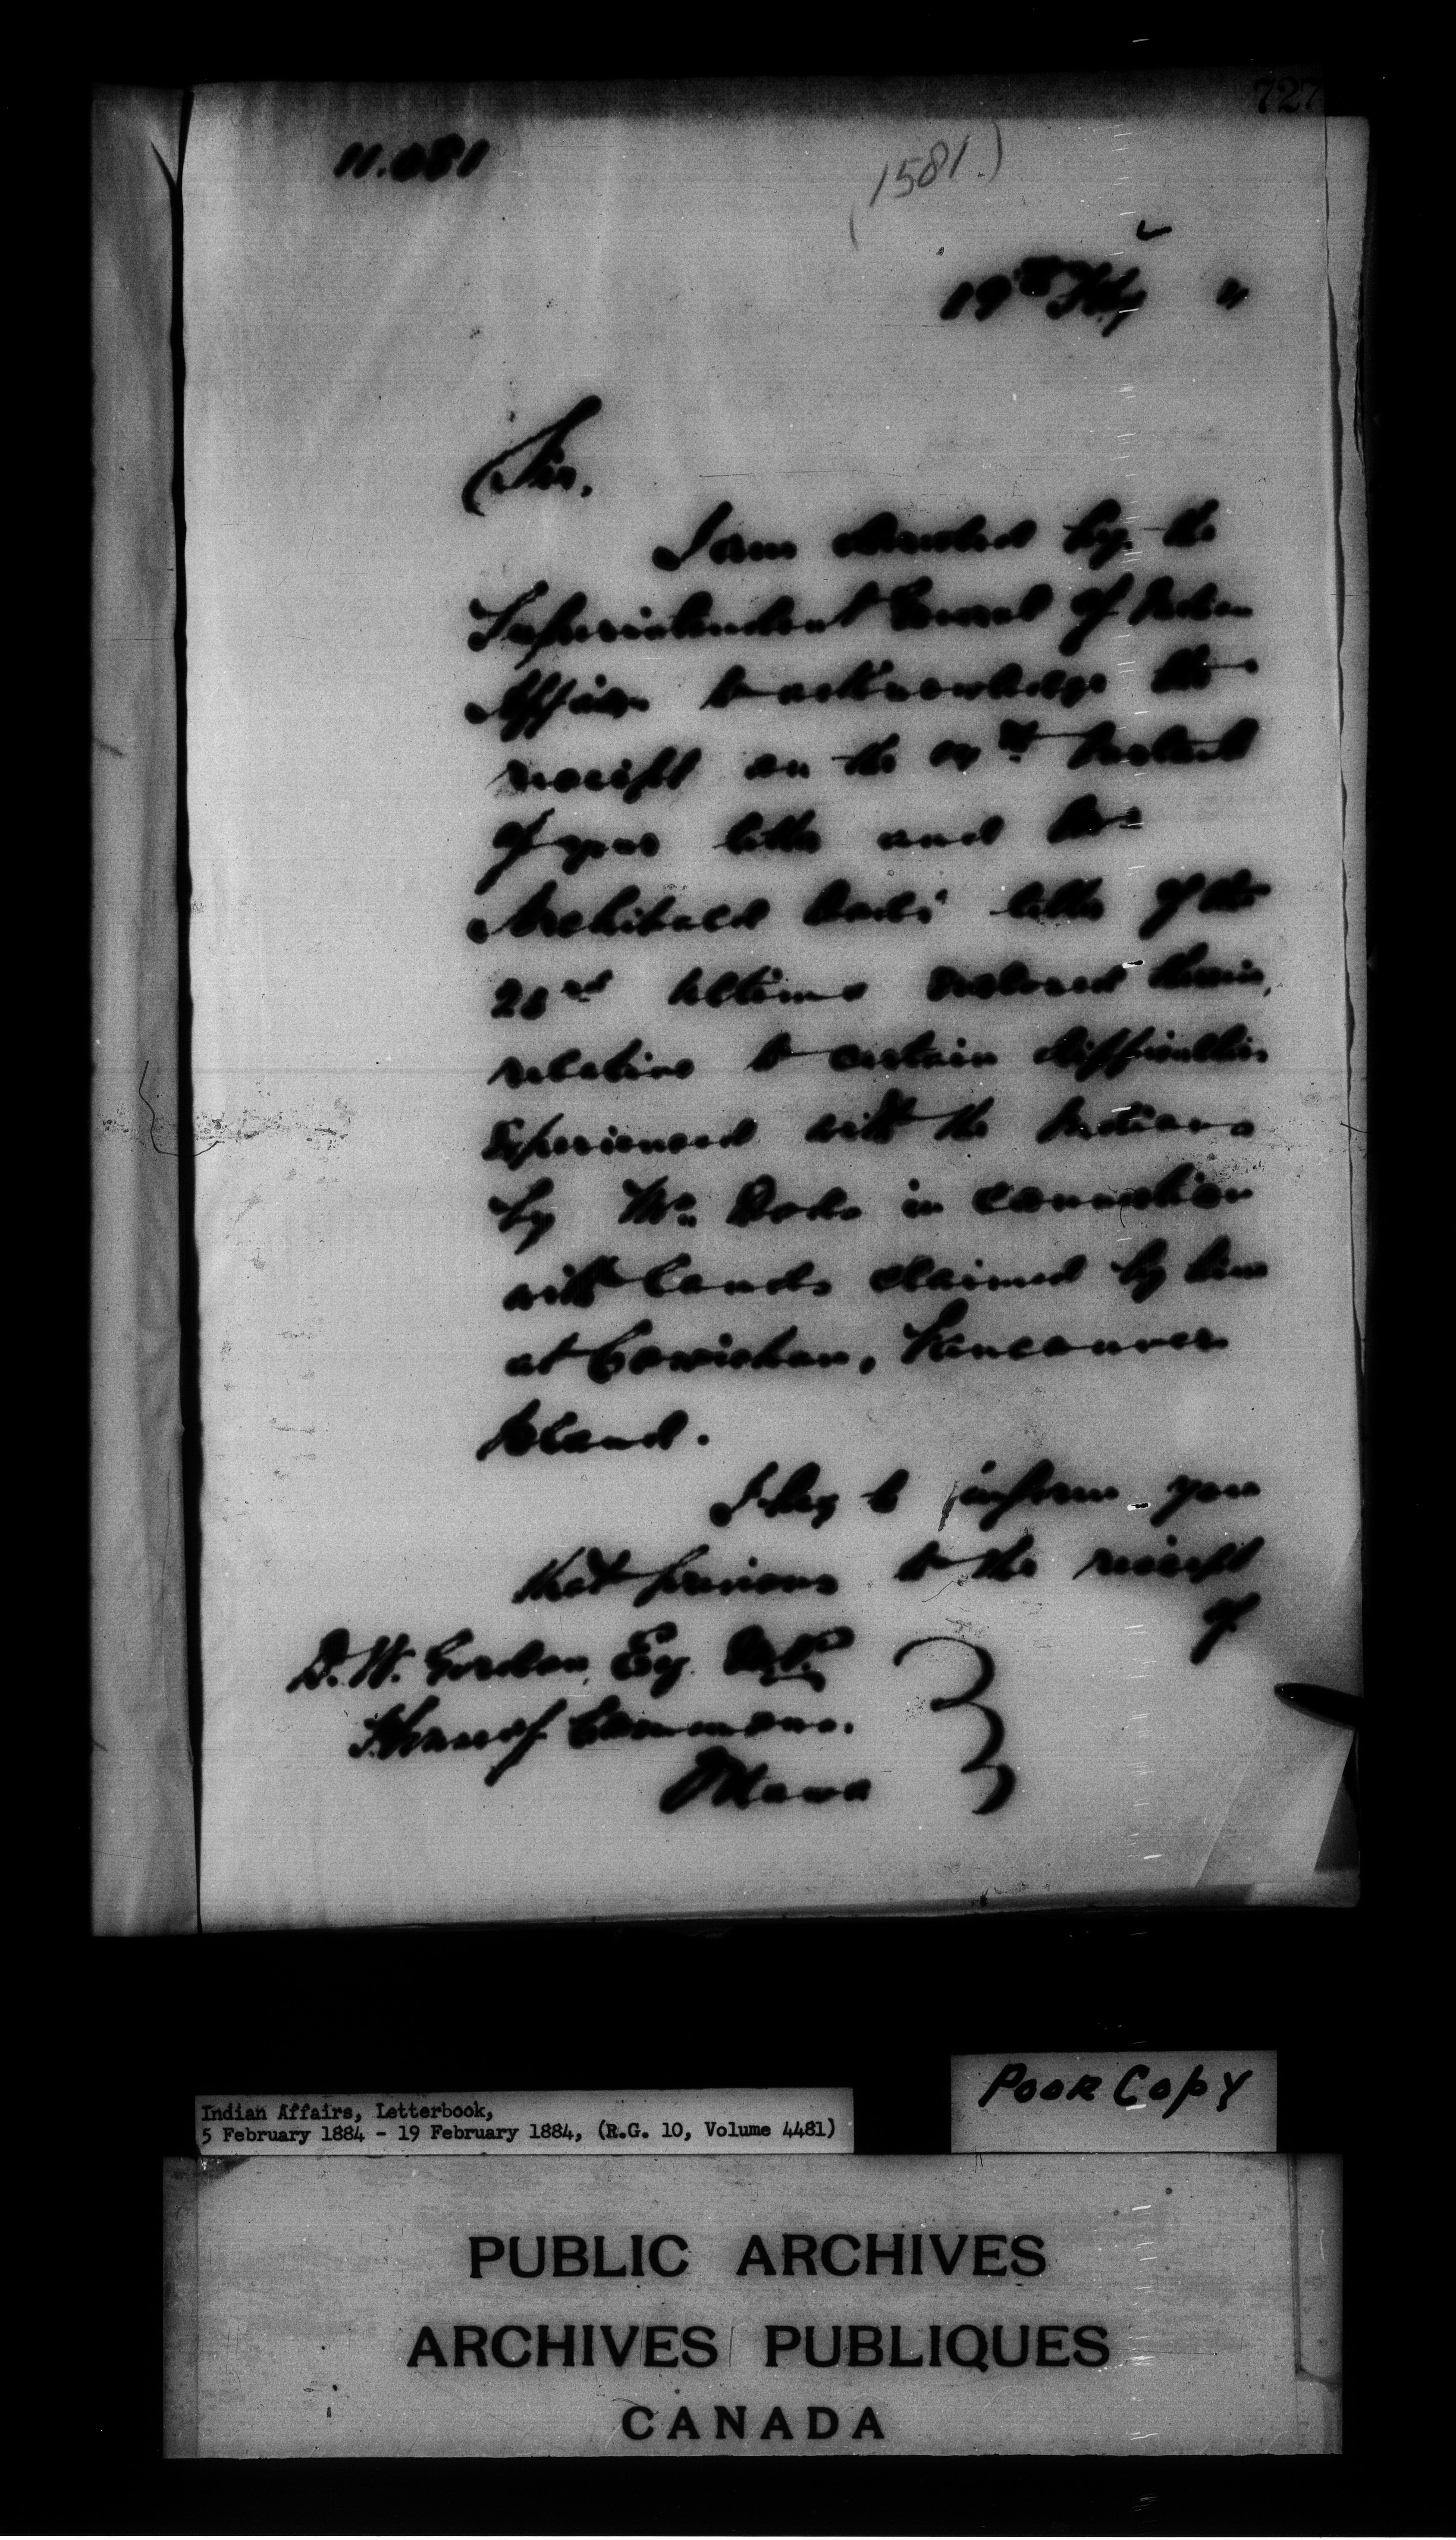 727
11.081
(1581.)
19th Feby "
Sir,
I am directed by the
Superintendent General of Indian
Affairs to acknowledge the
receipt on the Instant
of your letter and Mr
Archibald Dods' letter of the
23rd ultimo enclosed therein,
relative to certain difficulties
experienced with the Indians
by Mr. Dods in connection
with lands claimed by him
at Cowichan, Vancouver
Island.
I beg to inform you
that previous to the receipt
of
D. W. Gordon, Esq. M.P.
House of Commons.
Ottawa
Indian Affairs, Letterbook,
5 February 1884 - 19 February 1884, (R.G. 10, Volume 4481)
Poor Copy
PUBLIC ARCHIVES
ARCHIVES PUBLIQUES
CANADA